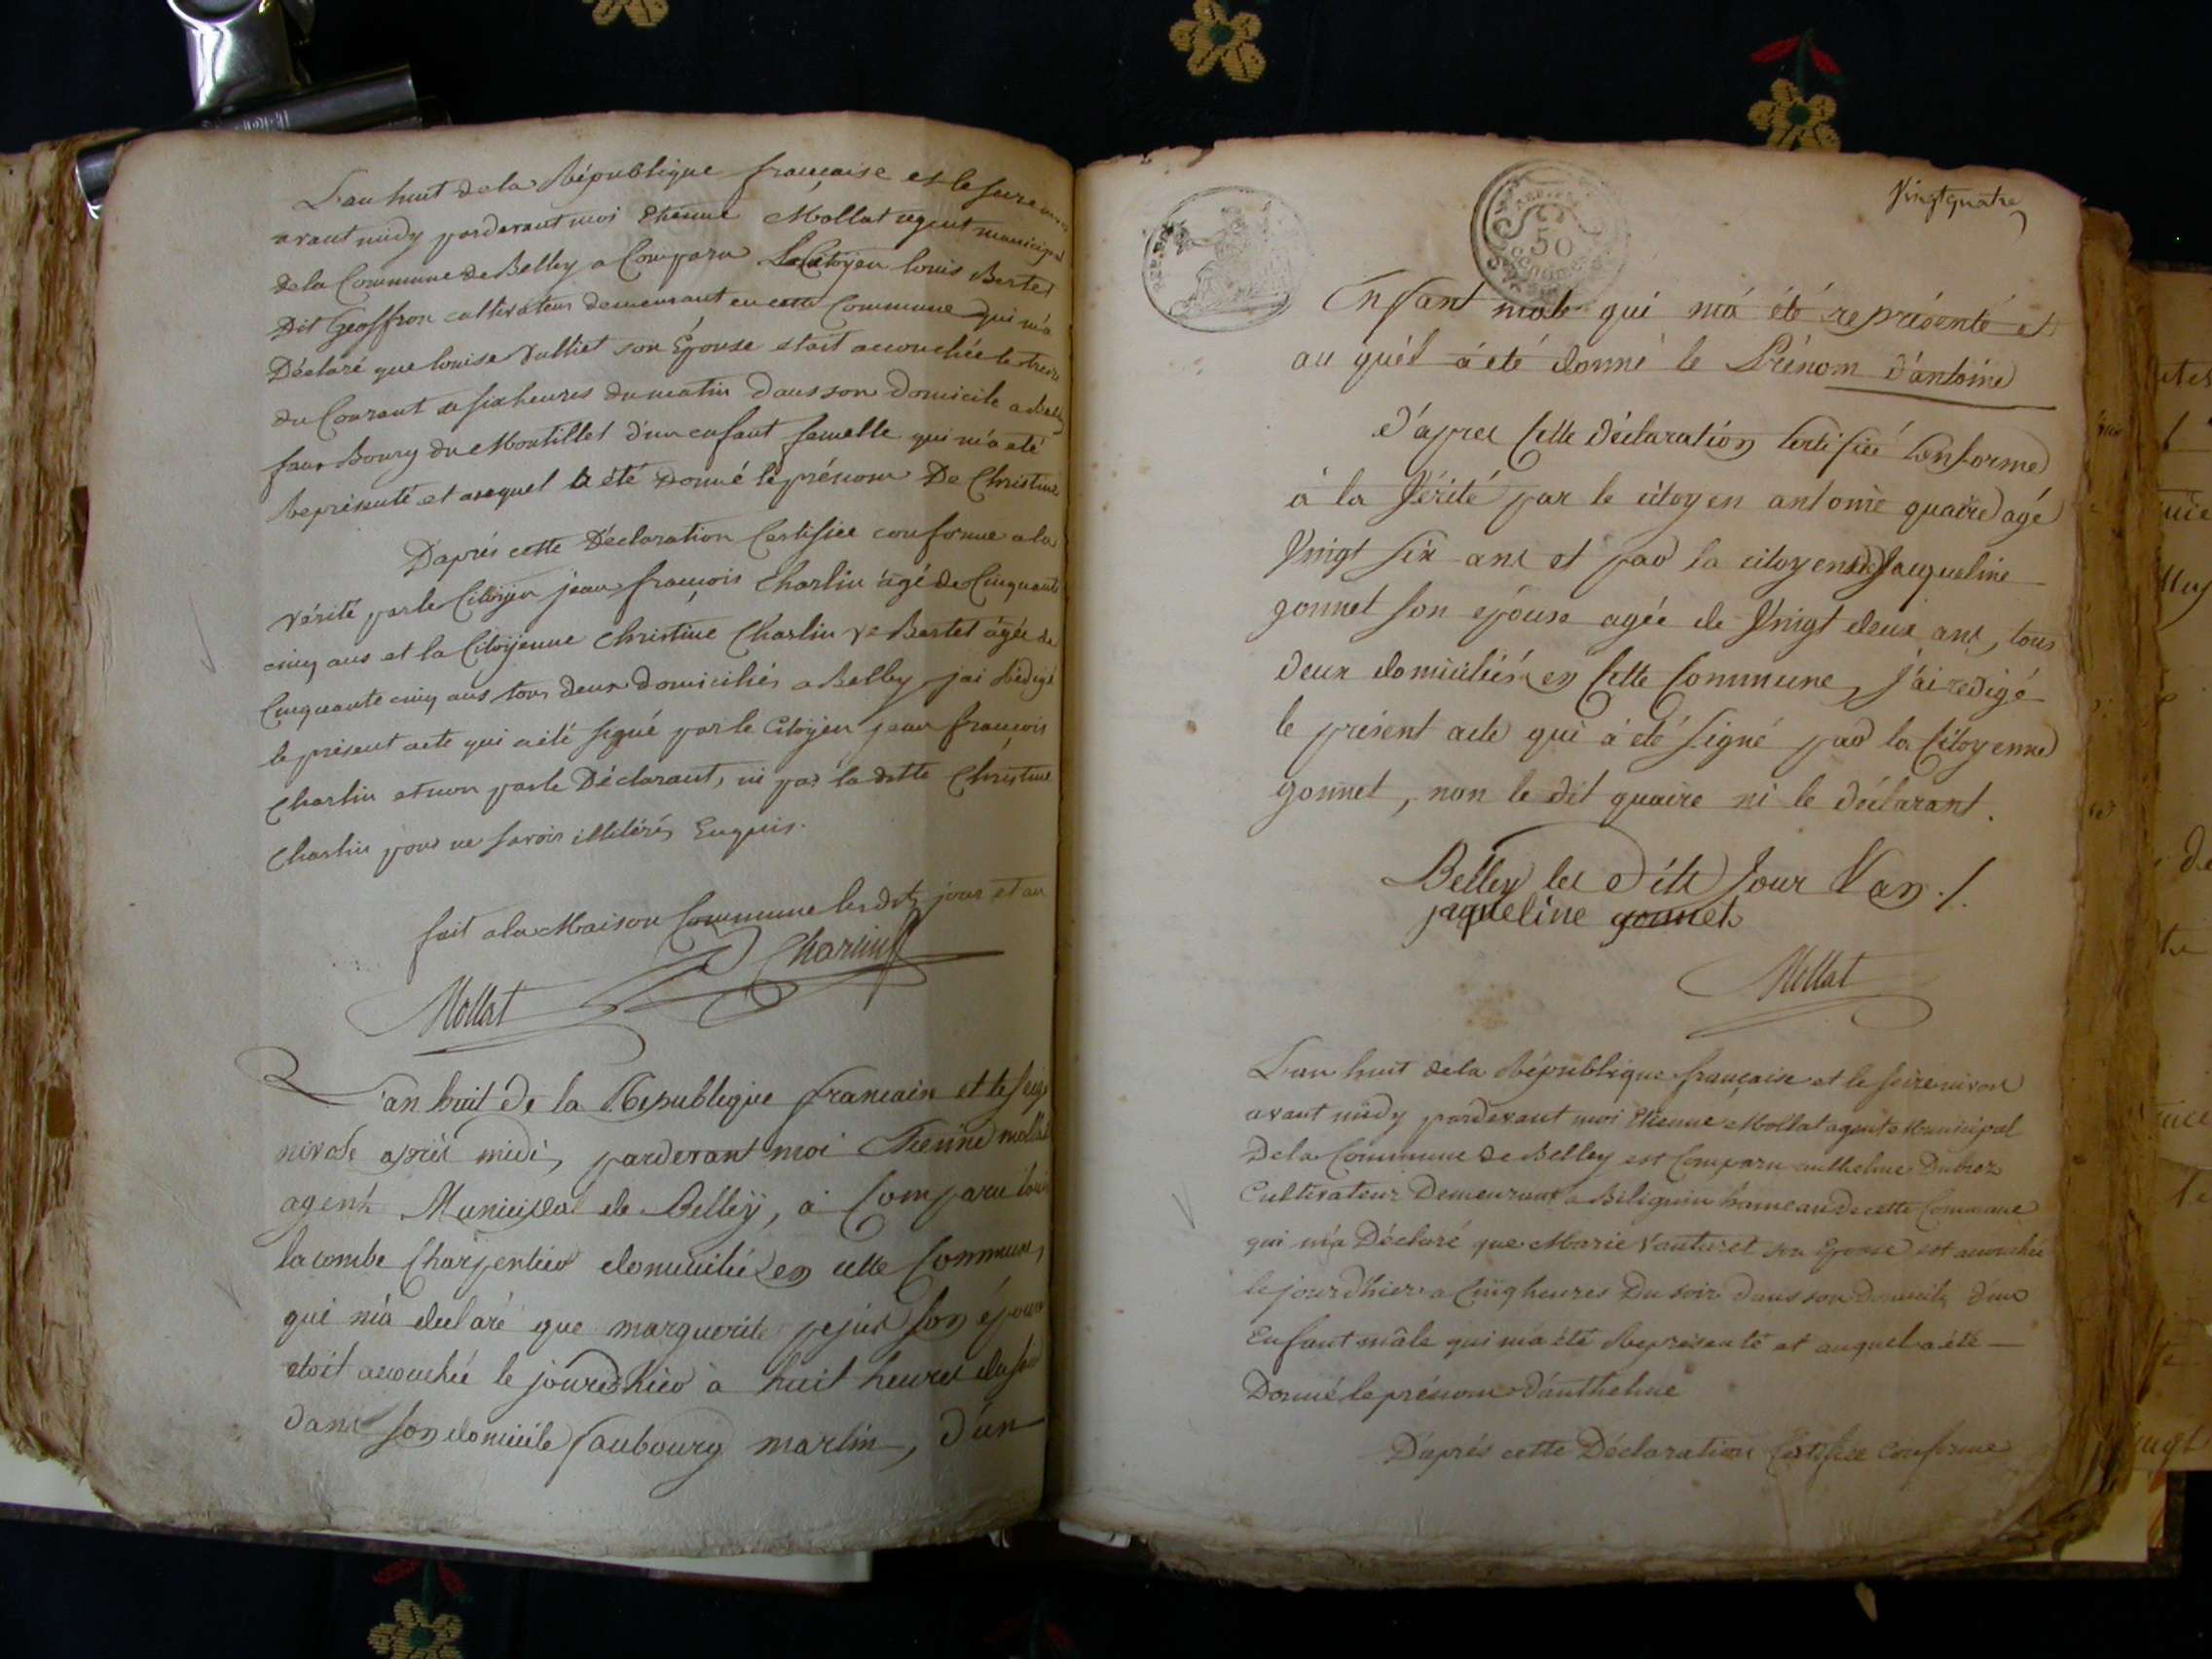 L'an huit de la République française et le seize
avant midy pardevant moi Etienne Mollat agent municipal
de la Commune de Belley a Comparu Le Citoyen louis Bertet
Dit Geoffron cultivateur demeurant en cette Commune qui m'a
Déclaré que louise Vulliet son Épouse etait accouchée le treize
du Courant a six heures du matin dans son domicile a Belley
faux Bourg du Montillet d'un enfant femelle qui m'a eté
Représenté et auquel a été donné le prénom De Christine
D'aprés cette Déclaration Certifiée conforme a la
vérité par le Citoyen jean françois Charlin âgé de Cinquante
cinq ans et la Citoyenne Christine Charlin ve Bertet âgée de
Cinquante cinq ans tous deux domiciliés a Belley j'ai Rédigé
le présent acte qui a été signé par le Citoyen jean françois
Charlin et non par le Déclarant, ni par la ditte Christine
Charlin pour ne savoir illitérés Enquis.
fait a la Maison Commune les dits jour et an
Charlin
Mollat
L'an huit de la République francaise et le seize
nivose après midi, pardevant moi Etienne mollat
agent Municipal de Belley, à Comparu louis
lacombe Charpentier domicilié en cette Commune,
qui m'a declaré que marguerite pejus son épouse
etoit accouchée le jourdhier à huit heures du soir
dans son domicile faubourg marlin, d'un
Vingtquatre
50
Enfant male qui m'á été représenté et
au quel à été donné le Prénom d'antoine
d'apres Cette déclaration Certifiée Conforme
à la Vérité par le citoyen antoine quaire agé
Vingt six ans et par la citoyenne Jacqueline
gonnet son epouse agée de Vingt deux ans, tous
deux domiciliés en Cette Commune, j'ai redigé
le présent acte qui à été signé par la Citoyenne
gonnet, non le dit quaire ni le déclarant.
Belley les dits Jour & an ./.
jaqueline gonnet
Mollat
L'an huit de la République française et le seize nivose
avant midy pardevant moi Etienne Mollat agent Municipal
De la Commune de Belley est Comparu anthelme Dubrez
Cultivateur Demeurant a Biliguin hameau de cette Commune
qui m'a Déclaré que Marie Vautaret son Epouse est accouchée
le jour d'hier a Cinq heures Du soir dans son domicile d'un
Enfant mâle qui m'a été Représenté et auquel a été
Donné le prénom d'anthelme
D'aprés cette Déclaration Certifiée Conforme